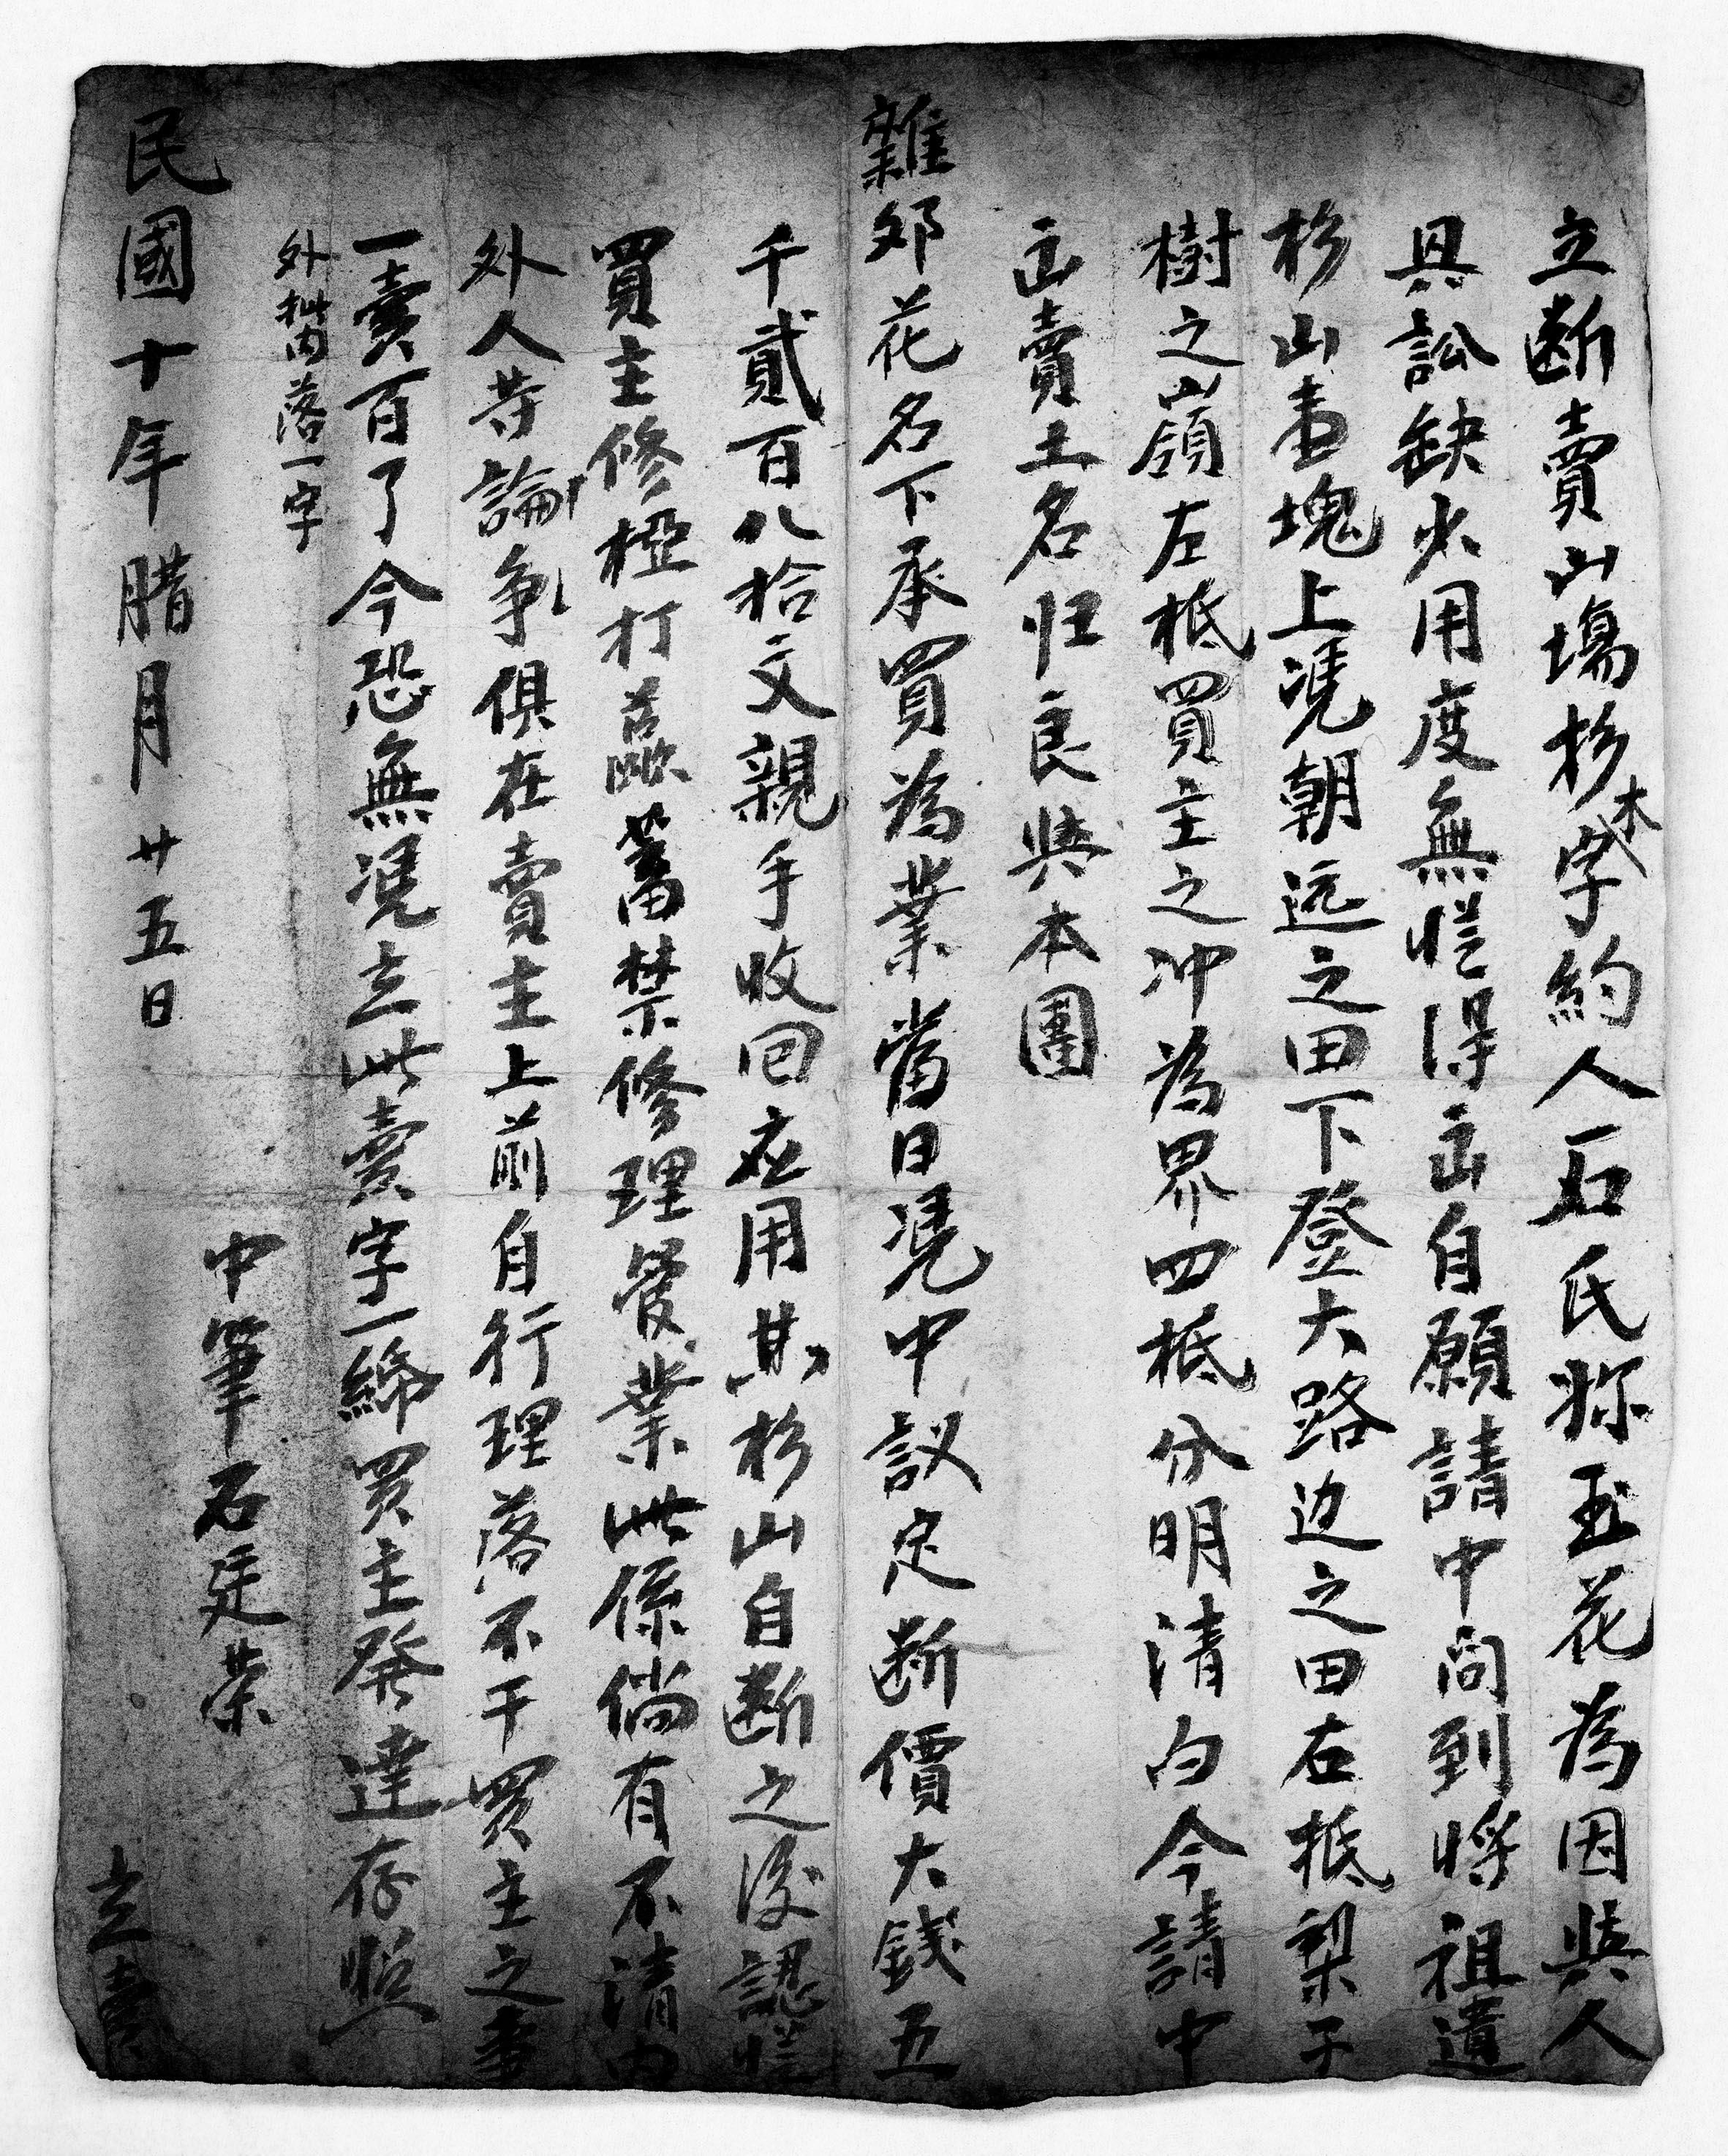 立断賣山塲杉木字約人石氏妳玉花為因與人
具訟缺少用度無從得出自願請中问到将祖遺
杉山壹塊上凴朝远之田下登大路边之田右抵梨子
樹之嶺左抵買主之冲為界四抵分明清白今請中
出賣土名归良與本團
雜邓花名下承買為業當日凴中議定断價大錢五
千貳百八拾文親手收回应用其杉山自断之後認從
買主修極打蔸蓄禁修理管業此係倘有不清内
外人等論争俱在賣主上前自行理落不干買主之事
一賣百了今恐無凴立此賣字一締買主發達存照
外批内落一字
中筆石廷荣
民國十年腊月廿五日 立賣